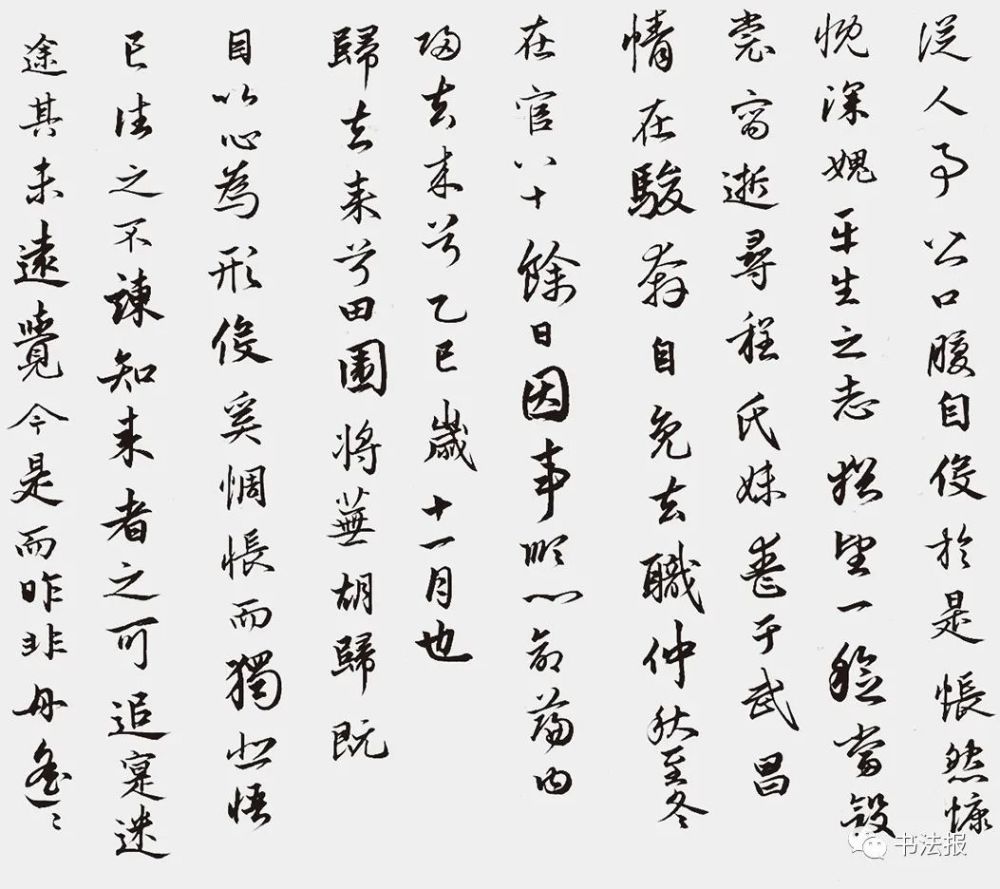 從人事皆口腹自役於是悵然慷
慨深愧平生之志猶望一稔當斂
裳宵逝尋程氏妹喪于武昌
情在駿奔自免去職仲秋至冬
在官八十餘日因事順心命篇曰
歸去来兮乙巳歲十一月也
歸去来兮田園將蕪胡歸既
自以心為形役奚惆悵而獨悲悟
已往之不諫知来者之可追寔迷
途其未遠覺今是而昨非舟遙〻
书法报